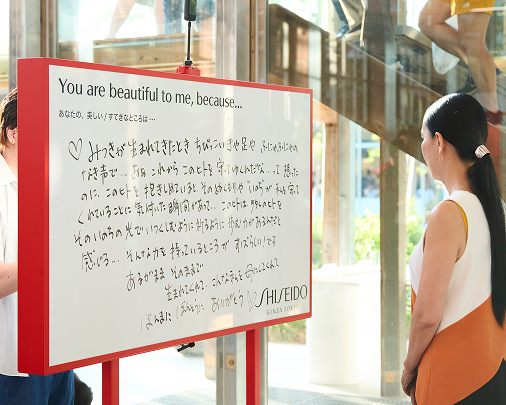 You are beautiful to me, because...
あなたの、美しい/すてきなところは…
♡ みつきが 生まれてきたとき ちっこい 手や足や ふにゃふにゃの
なき声で… あぁ これから このヒトを 守って いくんだな… って 思った
のに、このヒトを 抱きしめていると その ぬくもりや いのちが 私を 守って
くれていることに 気付いた 瞬間があって… このヒトは 人のヒトを
その いのちの 光で いつくしむように 祈るように 歩む力があるんだと
感じる… そんな力を 持っているところが すばらしい!です
ありがまま そのままで
生まれてくれて、こんな 母にしてくれて
ほんまに ほんとうに ありがとう ♡
SHISEIDO
GINZA TOKYO